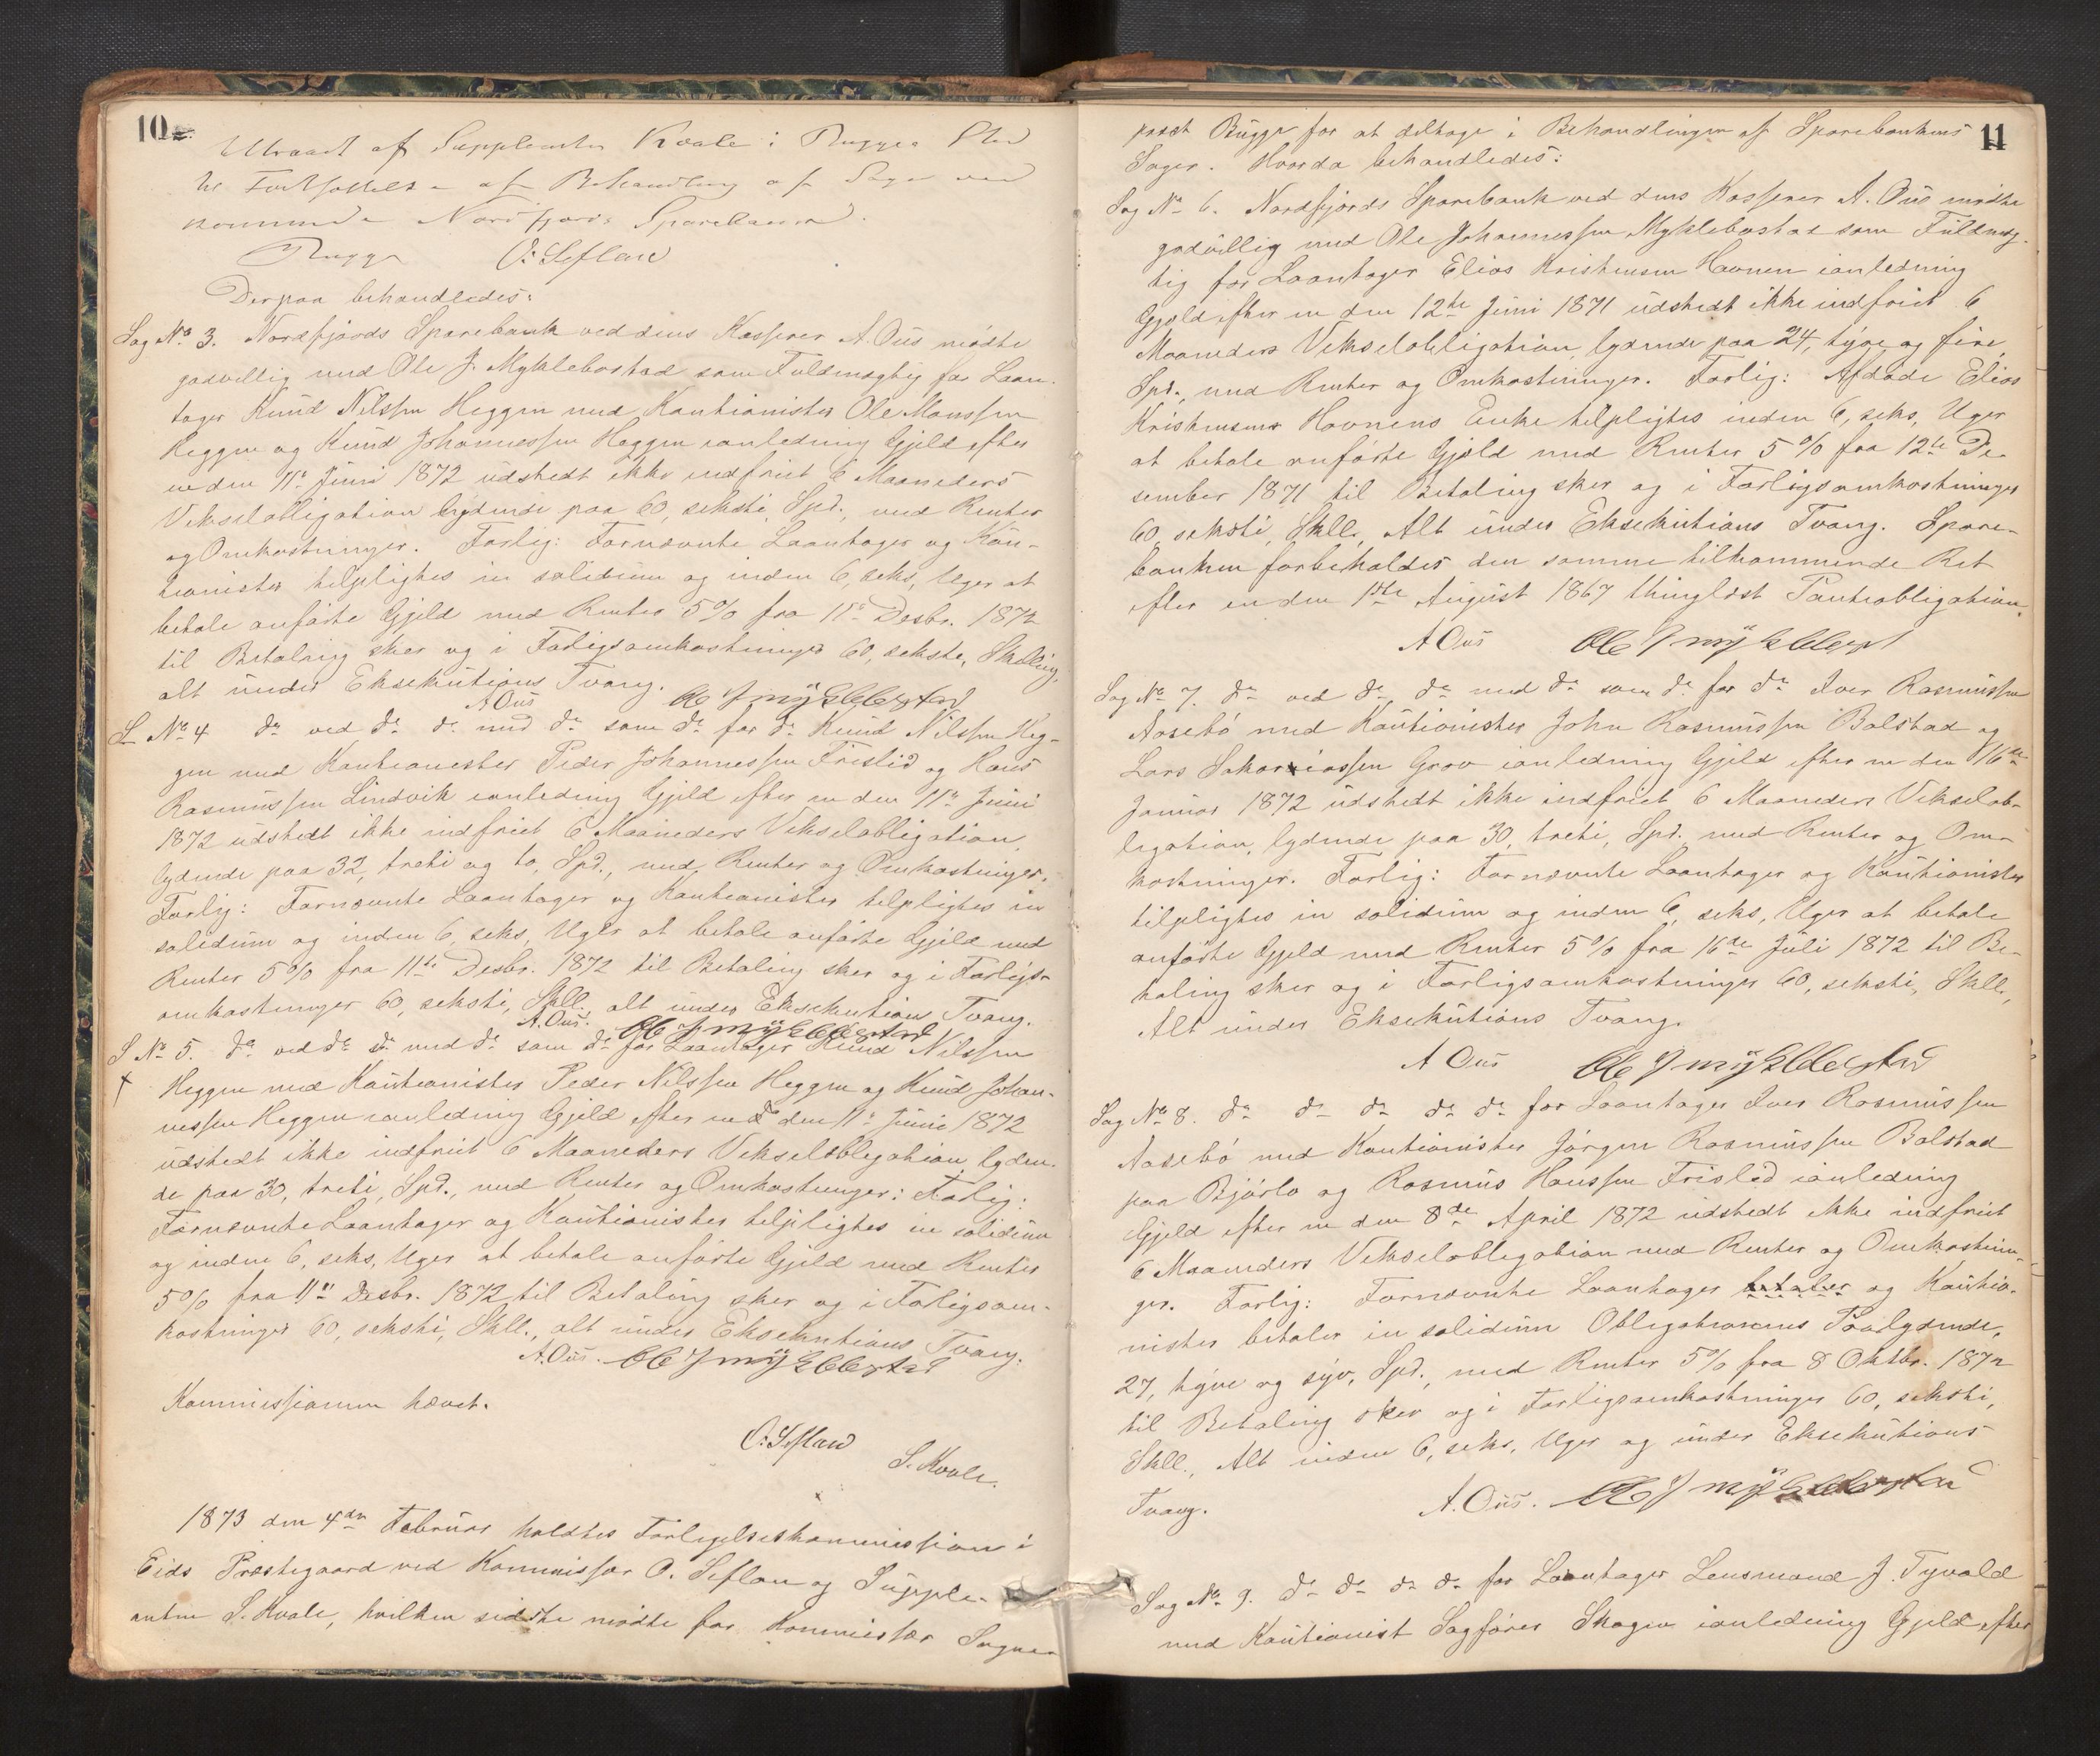 10
Tiltraadt af Suppleanten Kvale i Bugges Sted
til Fortsættelse af Behandling af Sager ved
kommende Nordfjords Sparebank.
Bugge O. Leflan
Derpaa behandledes:
Sag No 3. Nordfjords Sparebank ved dens Kasserer A. Ous mødte
godvillig med Ole J. Myklebostad som Fuldmægtig for Laan-
tager Knud Nilssen Heggen med Kautionister Ole Monssen
Heggen og Knud Johannessen Heggen ianledning Gjæld efter
en den 11te Juni 1872 udstedt ikke indfriet 6 Maaneders
Vekselobligation lydende paa 60, seksti, Spd., med Renter
og Omkostninger. Forlig: Fornævnte Laantager og Kau-
tionister tilpligtes in solidum og inden 6, seks, Uger at
betale anførte Gjæld med Renter 5% fra 11te Desbr. 1872
til Betaling sker og i Forligsomkostninger 60, seksti, Skilling,
alt under Eksekutions Tvang.
A Ous Ole J Myklebostad
S No 4 do ved do do med do som do for do Knud Nilssen Heg-
gen med Kautionister Peder Johannessen Frislid og Hans
Rasmussen Lindvik ianledning Gjæld efter en den 11te Juni
1872 udstedt ikke indfriet 6 Maaneders Vekselobligation,
lydende paa 32, treti og to, Spd., med Renter og Omkostninger.
Forlig: Fornævnte Laantager og Kautionister tilpligtes in
solidum og inden 6, seks, Uger at betale anførte Gjæld med
Renter 5% fra 11te Desbr. 1872 til Betaling sker og i Forligs-
omkostninger 60, seksti, Skll. alt under Eksekutions Tvang.
A. Ous. Ole J Myklebostad
S No 5. do ved do do med do som do for Laantager Knud Nilssen
Heggen med Kautionister Peder Nilssen Heggen og Knud Johan-
nessen Heggen ianledning Gjæld efter en den 11te Juni 1872
udstedt ikke indfriet 6 Maaneders Vekselobligation lyden-
de paa 30, treti, Spd., med Renter og Omkostninger: Forlig:
Fornævnte Laantager og Kautionister tilpligtes in solidum
og inden 6, seks, Uger at betale anførte Gjæld med Renter
5% fra 11te Desbr. 1872 til Betaling sker og i Forligsom-
kostninger 60, seksti, Skll., alt under Eksekutions Tvang.
A. Ous. Ole J Myklebostad
Kommissionen hævet.
O. Leflan
S. Kvale.
1873 den 4de Februar holdtes Forligelseskommission i
Eids Præstegaard ved Kommissær O. Leflan og Supple-
anten S. Kvale, hvilken sidste mødte for Kommissær Sogne-
11
præst Bugge for at deltage i Behandlingen af Sparebankens
Sager. Hvorda behandledes:
Sag No 6. Nordfjords Sparebank ved dens Kasserer A. Ous mødte
godvillig med Ole Johannessen Myklebostad som Fuldmæg-
tig for Laantager Elias Kristensen Havnen ianledning
Gjæld efter en den 12te Juni 1871 udstedt ikke indfriet 6
Maaneders Vekselobligation, lydende paa 24, tyve og fire,
Spd., med Renter og Omkostninger. Forlig: Afdøde Elias
Kristensens Havnens Enke tilpligtes inden 6, seks, Uger
at betale anførte Gjæld med Renter 5% fra 12te De-
sember 1871 til Betaling sker og i Forligsomkostninger
60, seksti, Skll., Alt under Eksekutions Tvang. Spare-
banken forbeholdes den samme tilkommende Ret
efter en den 1ste August 1867 thinglæst Panteobligation.
A Ous Ole J Myklebost
Sag No 7. do ved do do med do som do for do Iver Rasmussen
Aasebø med Kautionister John Rasmussen Bolstad og
Lars Sakariassen Grov ianledning Gjæld efter en den 16de
Januar 1872 udstedt ikke indfriet 6 Maaneders Vekselob-
ligation, lydende paa 30, treti, Spd. med Renter og Om-
kostninger. Forlig: Fornævnte Laantager og Kautionister
tilpligtes in solidum og inden 6, seks, Uger at betale
anførte Gjæld med Renter 5% fra 16de Juli 1872 til Be-
taling sker og i Forligsomkostninger 60, seksti, Skll.,
Alt under Eksekutions Tvang.
A Ous Ole J Myklebostad
Sag No 8. do do do do do for Laantager Iver Rasmussen
Aasebø med Kautionister Jørgen Rasmussen Bolstad
paa Bjørlo og Rasmus Hanssen Frislid ianledning
Gjæld efter en den 8de April 1872 udstedt ikke indfriet
6 Maaneders Vekselobligation med Renter og Omkostnin-
ger. Forlig: Fornævnte Laantager betaler og Kautio-
nister betaler in solidum Obligationens Paalydende,
27, tyve og syv, Spd., med Renter 5% fra 8 Oktbr. 1872
til Betaling sker og i Forligsomkostninger 60, seksti,
Skll., Alt inden 6, seks, Uger og under Eksekutions
Tvang.
A. Ous. Ole J Myklebostad
Sag No 9. do do do do for Laantager Lensmand J. Tyvold
med Kautionist Sagfører Skogen ianledning Gjæld efter